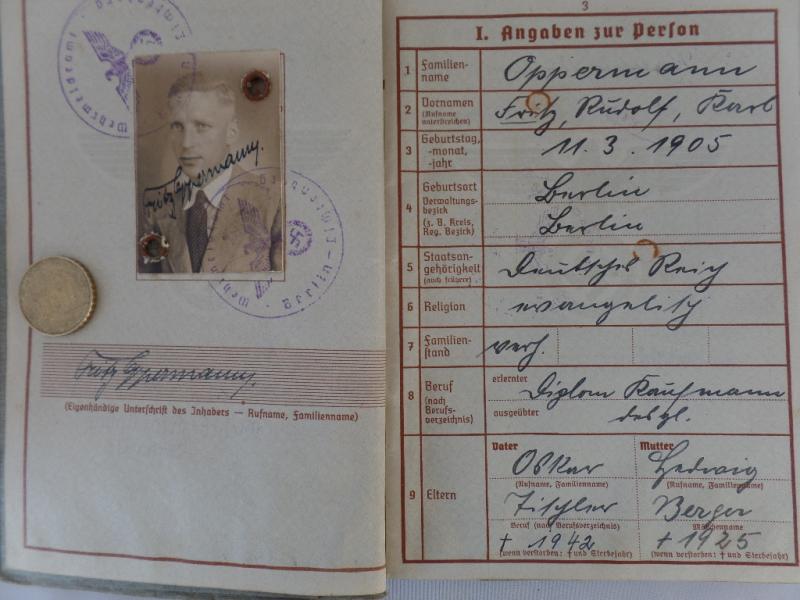 Wehrmeldeamt
Fritz Oppermann.
Fritz Oppermann.
(Eigenhändige Unterschrift des Inhabers — Rufname, Familienname)
3
I. Angaben zur Person
1 Familien-
name
Oppermann
2 Vornamen
(Rufname
unterstreichen)
Fritz, Rudolf, Karl
3 Geburtstag,
-monat,
-jahr
11. 3. 1905
4 Geburtsort
Berlin
Verwaltungs-
bezirk
(z. B. Kreis,
Reg. Bezirk)
Berlin
5 Staatsan-
gehörigkeit
(auch frühere)
Deutsches Reich
6 Religion
evangelisch
7 Familien-
stand
verh.
8 Beruf
(nach
Berufs-
verzeichnis)
erlernter
Diplom Kaufmann
ausgeübter
desgl.
9 Eltern
Vater Mutter
Oskar Hedwig
(Rufname, Familienname) (Rufname, Familienname)
Tischler Berger
Beruf (nach Berufsverzeichnis) Mädchenname
† 1942 † 1925
(wenn verstorben: † und Sterbejahr) (wenn verstorben: † und Sterbejahr)